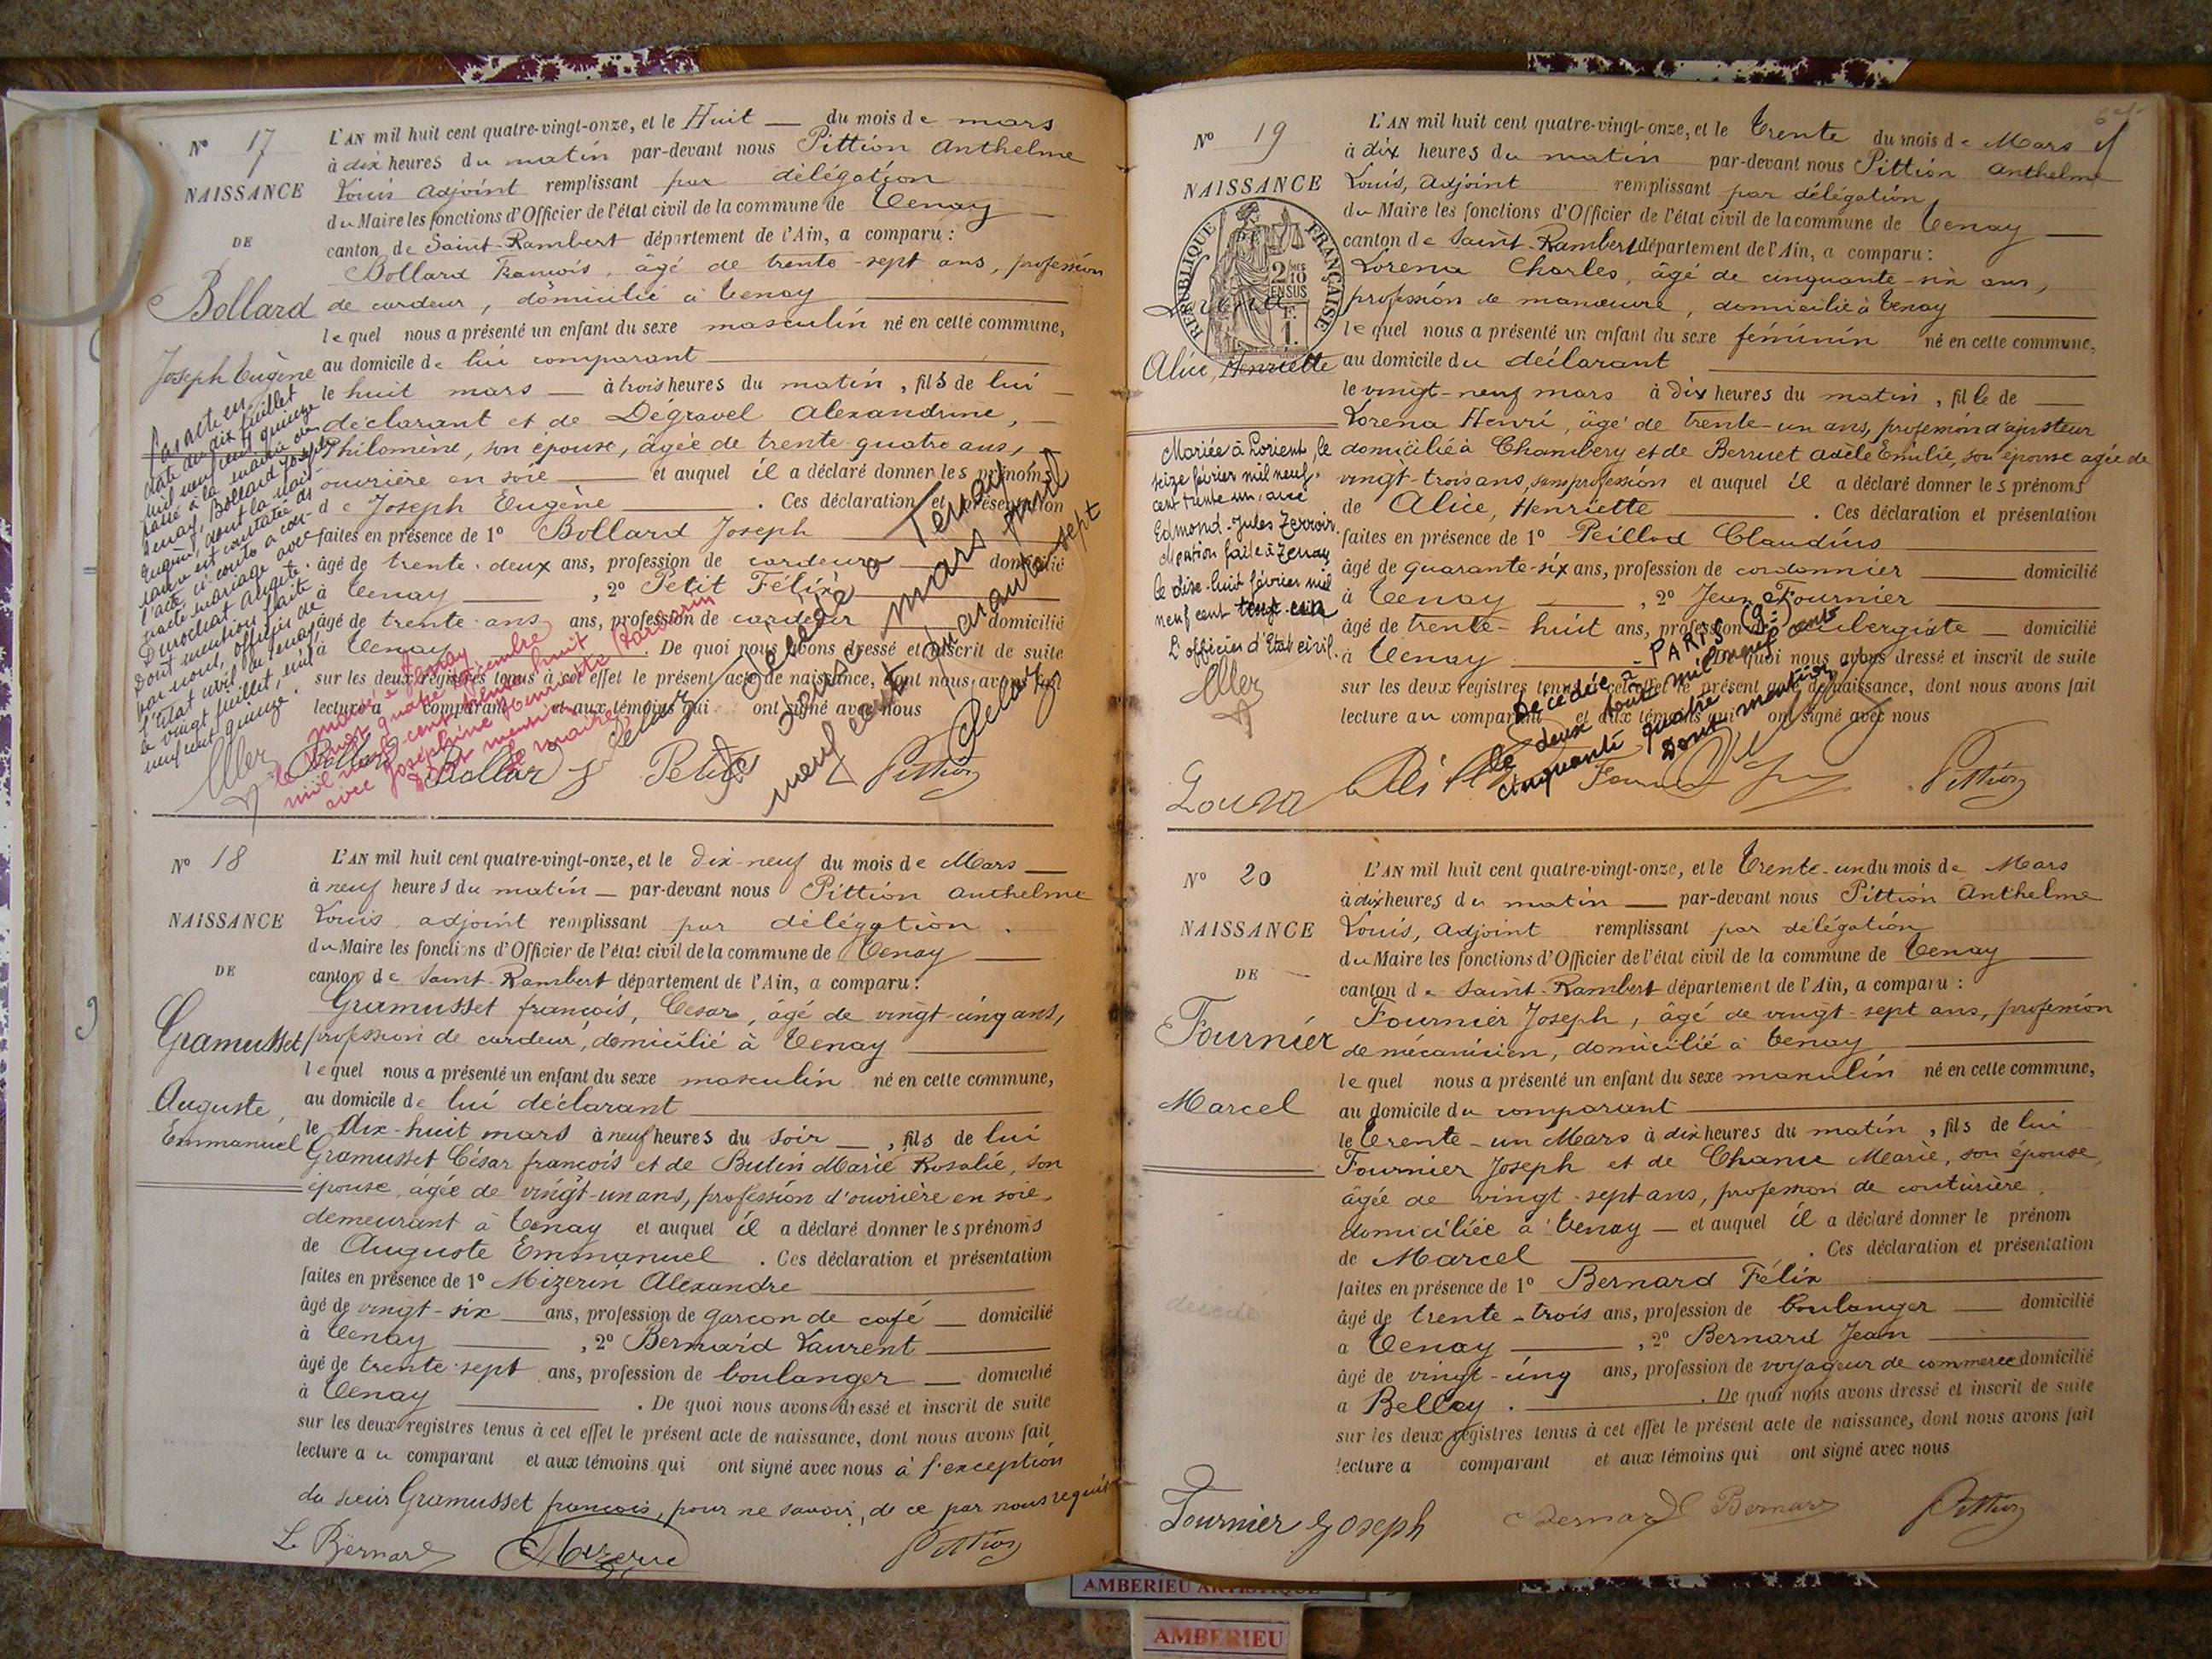 N° 17
NAISSANCE
DE
Bollard
Joseph Eugène
L'AN mil huit cent quatre-vingt-onze, et le Huit du mois de mars
à dix heures du matin par-devant nous Pittion Anthelme
Louis Adjoint remplissant par délégation
du Maire les fonctions d'Officier de l'état civil de la commune de Tenay
canton de Saint-Rambert département de l'Ain, a comparu :
Bollard François, âgé de trente-sept ans, profession
de cardeur, domicilié à Tenay
lequel nous a présenté un enfant du sexe masculin né en cette commune,
au domicile de lui comparant
le huit mars à trois heures du matin, fils de lui
déclarant et de Dégravel Alexandrine,
Philomène, son épouse, âgée de trente-quatre ans,
ouvrière en soie et auquel il a déclaré donner les prénoms
de Joseph Eugène. Ces déclaration et présentation
faites en présence de 1° Bollard Joseph
âgé de trente-deux ans, profession de cardeur domicilié
à Tenay, 2° Petit Félix
âgé de trente ans ans, profession de cardeur domicilié
à Tenay. De quoi nous avons dressé et inscrit de suite
sur les deux registres tenus à cet effet le présent acte de naissance, dont nous avons fait
lecture au comparant et aux témoins qui ont signé avec nous
Par acte en
date du dix juillet
mil neuf cent quinze
passé à la mairie de
Tenay, Bollard Joseph
Eugène, dont la nais-
sance est constatée ds
l'acte ci contre a con-
tracté mariage avec
Durochat Augte.
Dont mention faite
par nous, officier de
l'état civil de Tenay
le vingt juillet, mil
neuf cent quinze.
Marié à Tenay
le vingt quatre Décembre
mil neuf cent trente huit
avec Joséphine Henriette
Dont mention
Le maire
Décédé à Tenay
douze mars mil
neuf cent quarante sept
Bollard Bollard J Petit Pittion
N° 18
NAISSANCE
DE
Gramusset
Auguste,
Emmanuel
L'AN mil huit cent quatre-vingt-onze, et le dix-neuf du mois de Mars
à neuf heures du matin par-devant nous Pittion Anthelme
Louis, adjoint remplissant par délégation.
du Maire les fonctions d'Officier de l'état civil de la commune de Tenay
canton de Saint-Rambert département de l'Ain, a comparu :
Gramusset françois, César, âgé de vingt-cinq ans,
profession de cardeur, domicilié à Tenay
lequel nous a présenté un enfant du sexe masculin né en cette commune,
au domicile de lui déclarant
le dix-huit mars à neuf heures du soir, fils de lui
Gramusset César françois et de Butin Marie Rosalie, son
épouse, âgée de vingt-un ans, profession d'ouvrière en soie
demeurant à Tenay et auquel il a déclaré donner les prénoms
de Auguste Emmanuel. Ces déclaration et présentation
faites en présence de 1° Mizerin Alexandre
âgé de vingt-six ans, profession de garçon de café domicilié
à Tenay, 2° Bernard Laurent
âgé de trente-sept ans, profession de boulanger domicilié
à Tenay. De quoi nous avons dressé et inscrit de suite
sur les deux registres tenus à cet effet le présent acte de naissance, dont nous avons fait
lecture au comparant et aux témoins qui ont signé avec nous à l'exception
du sieur Gramusset françois, pour ne savoir, de ce par nous requis
L. Bernard Pittion
N° 19
NAISSANCE
RÉPUBLIQUE FRANÇAISE
2/10MES
EN SUS
F.
1.
Lorena
Alice, Henriette
L'AN mil huit cent quatre-vingt-onze, et le Trente du mois de Mars
à dix heures du matin par-devant nous Pittion Anthelme
Louis, Adjoint remplissant par délégation
du Maire les fonctions d'Officier de l'état civil de la commune de Tenay
canton de Saint-Rambert département de l'Ain, a comparu :
Lorena Charles, âgé de cinquante-six ans,
profession de manœuvre, domicilié à Tenay
lequel nous a présenté un enfant du sexe féminin né en cette commune,
au domicile du déclarant
le vingt-neuf mars à dix heures du matin, fille de
Lorena Henri, âgé de trente-un ans, profession d'ajusteur
domicilié à Chambéry et de Berruet Adèle Emilie, son épouse agée de
vingt-trois ans, sans profession et auquel il a déclaré donner les prénoms
de Alice, Henriette. Ces déclaration et présentation
faites en présence de 1° Peillod Claudius
âgé de quarante-six ans, profession de cordonnier domicilié
à Tenay, 2° Jean Fournier
âgé de trente-huit ans, profession de aubergiste domicilié
à Tenay. De quoi nous avons dressé et inscrit de suite
sur les deux registres tenus à cet effet le présent acte de naissance, dont nous avons fait
lecture au comparant et aux témoins qui ont signé avec nous
Mariée à Lorient, le
seize février mil neuf
cent trente un, avec
Edmond-Jules Terroir.
Mention faite à Tenay
le dix-huit février mil
neuf cent
L'officier d'Etat civil.
Décédée à PARIS (9e)
le deux août mil neuf cent
cinquante quatre
Dont mention
Pittion
N° 20
NAISSANCE
DE
Fournier
Marcel
L'AN mil huit cent quatre-vingt-onze, et le Trente-un du mois de Mars
à dix heures du matin par-devant nous Pittion Anthelme
Louis, Adjoint remplissant par délégation
du Maire les fonctions d'Officier de l'état civil de la commune de Tenay
canton de Saint-Rambert département de l'Ain, a comparu :
Fournier Joseph, âgé de vingt-sept ans, profession
de mécanicien, domicilié à Tenay
lequel nous a présenté un enfant du sexe masculin né en cette commune,
au domicile du comparant
le Trente-un Mars à dix heures du matin, fils de lui
Fournier Joseph et de Chanu Marie, son épouse,
âgée de vingt-sept ans, profession de couturière
domiciliée à Tenay et auquel il a déclaré donner le prénom
de Marcel. Ces déclaration et présentation
faites en présence de 1° Bernard Félix
âgé de trente-trois ans, profession de boulanger domicilié
a Tenay, 2° Bernard Jean
âgé de vingt-cinq ans, profession de voyageur de commerce domicilié
a Belley. De quoi nous avons dressé et inscrit de suite
sur les deux registres tenus à cet effet le présent acte de naissance, dont nous avons fait
lecture a comparant et aux témoins qui ont signé avec nous
Fournier Joseph Bernard Bernard Pittion
AMBERIEU ARTISTIQUE
AMBERIEU